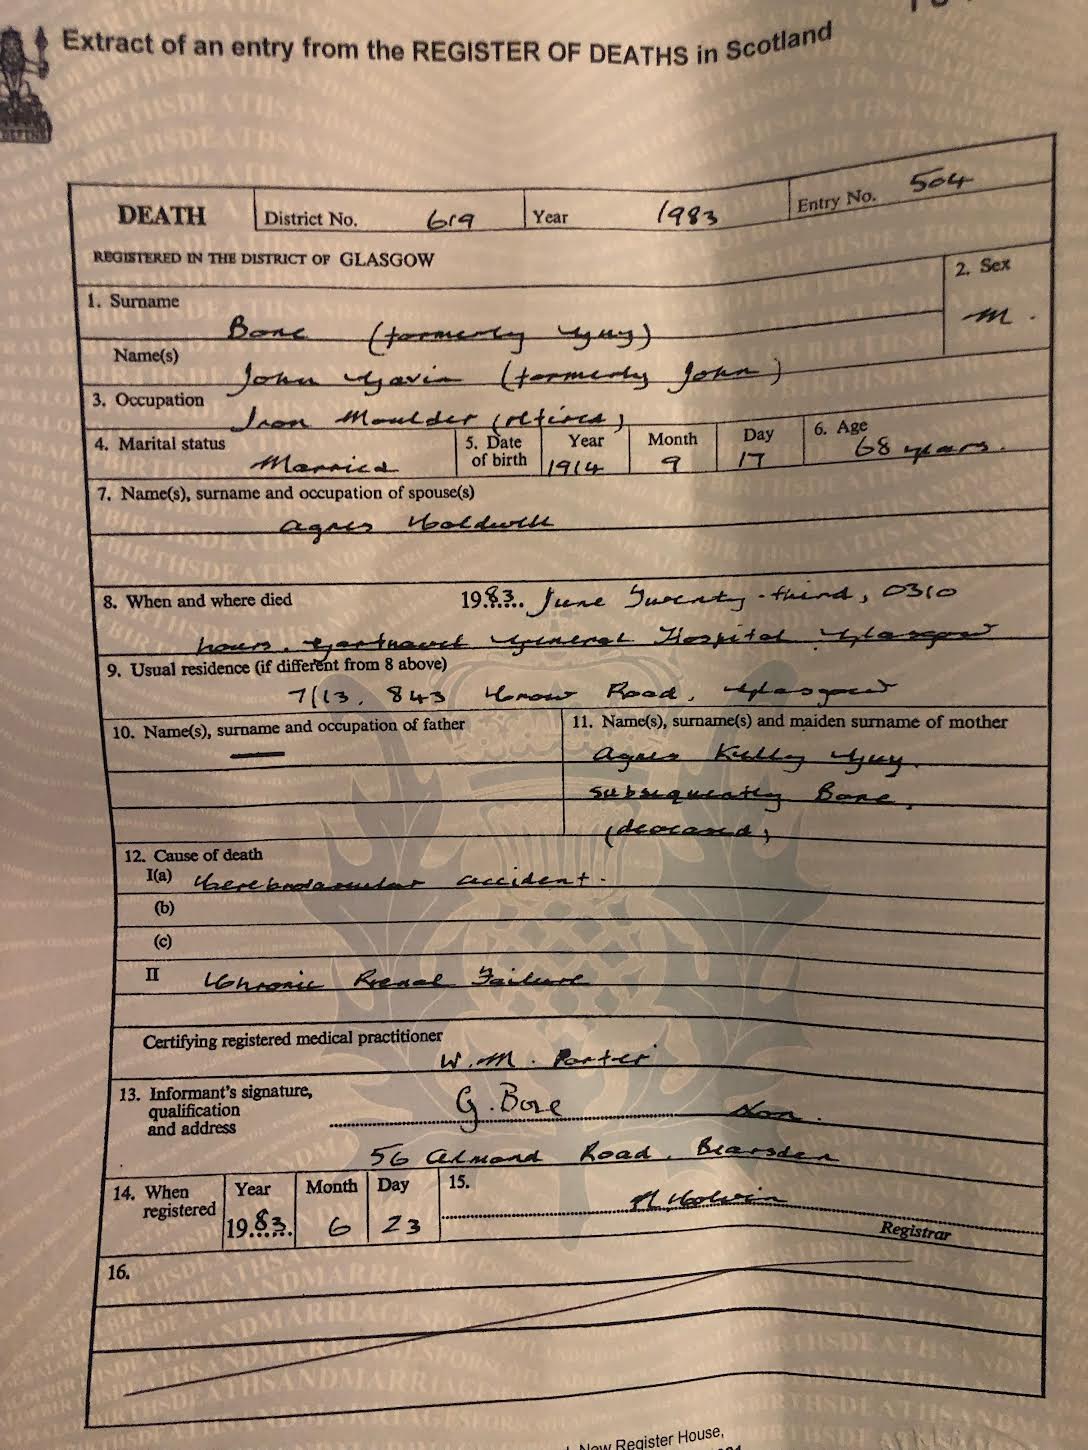 Extract of an entry from the REGISTER OF DEATHS in Scotland
DEATH District No. 619 Year 1983 Entry No. 504
REGISTERED IN THE DISTRICT OF GLASGOW
1. Surname 2. Sex
Bone (formerly Guy) M.
Name(s)
John Gavin (formerly John)
3. Occupation
Iron Moulder (retired)
4. Marital status 5. Date of birth Year Month Day 6. Age
Married 1914 9 17 68 years.
7. Name(s), surname and occupation of spouse(s)
Agnes Coldwell
8. When and where died 1983. June Twenty-third, 0310
hours. Gartnavel General Hospital Glasgow
9. Usual residence (if different from 8 above)
7/13, 843 Crow Road, Glasgow
10. Name(s), surname and occupation of father 11. Name(s), surname(s) and maiden surname of mother
Agnes Kelly Guy.
subsequently Bone,
(deceased)
12. Cause of death
I(a) Cerebrovascular accident.
(b)
(c)
II Chronic Renal Failure
Certifying registered medical practitioner
W. M. Porter
13. Informant's signature, qualification and address
G. Bone Son.
56 Almond Road, Bearsden
14. When registered Year Month Day 15.
1983. 6 23
Registrar
16.
New Register House,